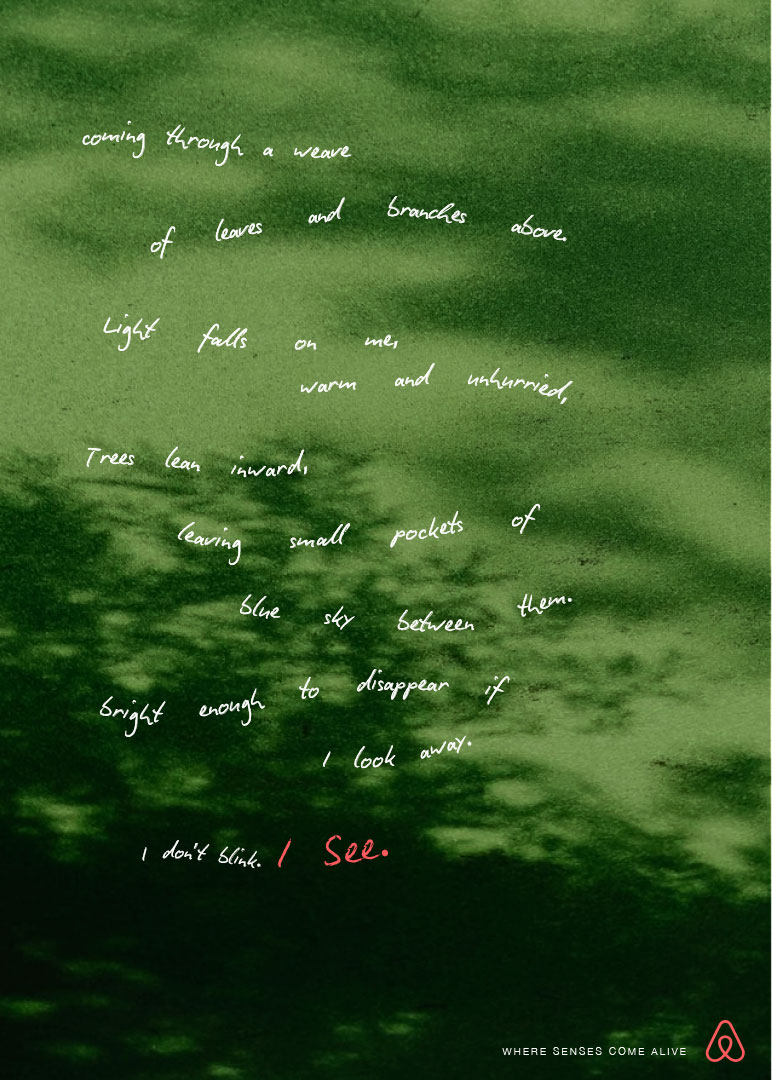 coming through a weave
of leaves and branches above.
Light falls on me,
warm and unhurried,
Trees lean inward,
leaving small pockets of
blue sky between them.
bright enough to disappear if
I look away.
I don't blink. I See.
WHERE SENSES COME ALIVE